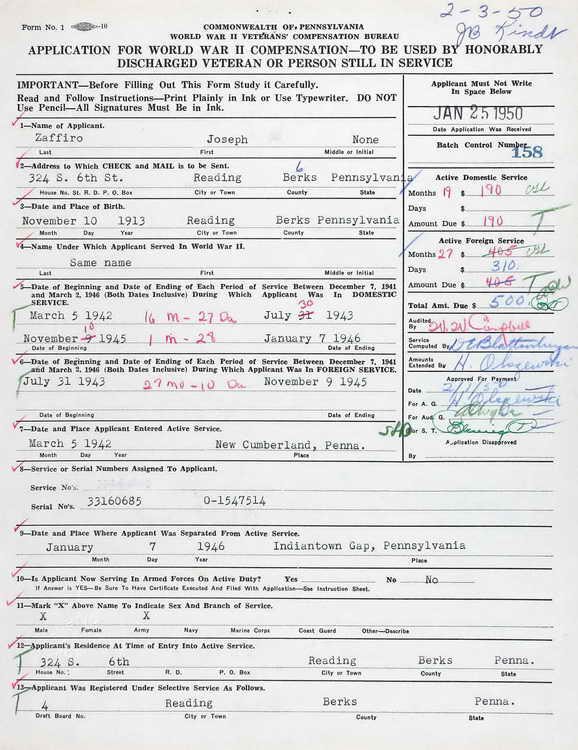 Form No. 1
COMMONWEALTH OF PENNSYLVANIA
WORLD WAR II VETERANS' COMPENSATION BUREAU
2-3-50
JB Kindt
APPLICATION FOR WORLD WAR II COMPENSATION—TO BE USED BY HONORABLY
DISCHARGED VETERAN OR PERSON STILL IN SERVICE
IMPORTANT—Before Filling Out This Form Study it Carefully.
Read and Follow Instructions—Print Plainly in Ink or Use Typewriter. DO NOT
Use Pencil—All Signatures Must Be in Ink.
Applicant Must Not Write
In Space Below
JAN 25 1950
Date Application Was Received
Batch Control Number
158
1—Name of Applicant.
Zaffiro Joseph None
Last First Middle or Initial
2—Address to Which CHECK and MAIL is to be Sent.
6
324 S. 6th St. Reading Berks Pennsylvania
House No. St. R. D. P. O. Box City or Town County State
Active Domestic Service
Months 19 $ 190
Days $
Amount Due $ 190
3—Date and Place of Birth.
November 10 1913 Reading Berks Pennsylvania
Month Day Year City or Town County State
4—Name Under Which Applicant Served In World War II.
Same name
Last First Middle or Initial
Active Foreign Service
Months 27 $ 405
Days $ 310
Amount Due $ 405
Total Amt. Due $ 500
5—Date of Beginning and Date of Ending of Each Period of Service Between December 7, 1941
and March 2, 1946 (Both Dates Inclusive) During Which Applicant Was In DOMESTIC
SERVICE.
30
March 5 1942 16 m - 27 Da July 31 1943
10
November 9 1945 1 m - 28 January 7 1946
Date of Beginning Date of Ending
Audited By Campbell
Service Computed By
Amounts Extended By H. Olszewski
6—Date of Beginning and Date of Ending of Each Period of Service Between December 7, 1941
and March 2, 1946 (Both Dates Inclusive) During Which Applicant Was In FOREIGN SERVICE.
July 31 1943 27 mo - 10 Da November 9 1945
Date of Beginning Date of Ending
Approved For Payment
Date 2/1/50
For A. G. H Olszewski
For Aud. G.
For S. T.
Application Disapproved
By
7—Date and Place Applicant Entered Active Service.
March 5 1942 New Cumberland, Penna.
Month Day Year Place
8—Service or Serial Numbers Assigned To Applicant.
Service No's.
Serial No's. 33160685 O-1547514
9—Date and Place Where Applicant Was Separated From Active Service.
January 7 1946 Indiantown Gap, Pennsylvania
Month Day Year Place
10—Is Applicant Now Serving In Armed Forces On Active Duty? Yes No No
If Answer is YES—Be Sure To Have Certificate Executed And Filed With Application—See Instruction Sheet.
11—Mark "X" Above Name To Indicate Sex And Branch of Service.
X X
Male Female Army Navy Marine Corps Coast Guard Other—Describe
12—Applicant's Residence At Time of Entry Into Active Service.
324 S. 6th Reading Berks Penna.
House No. Street R. D. P. O. Box City or Town County State
13—Applicant Was Registered Under Selective Service As Follows.
4 Reading Berks Penna.
Draft Board No. City or Town County State